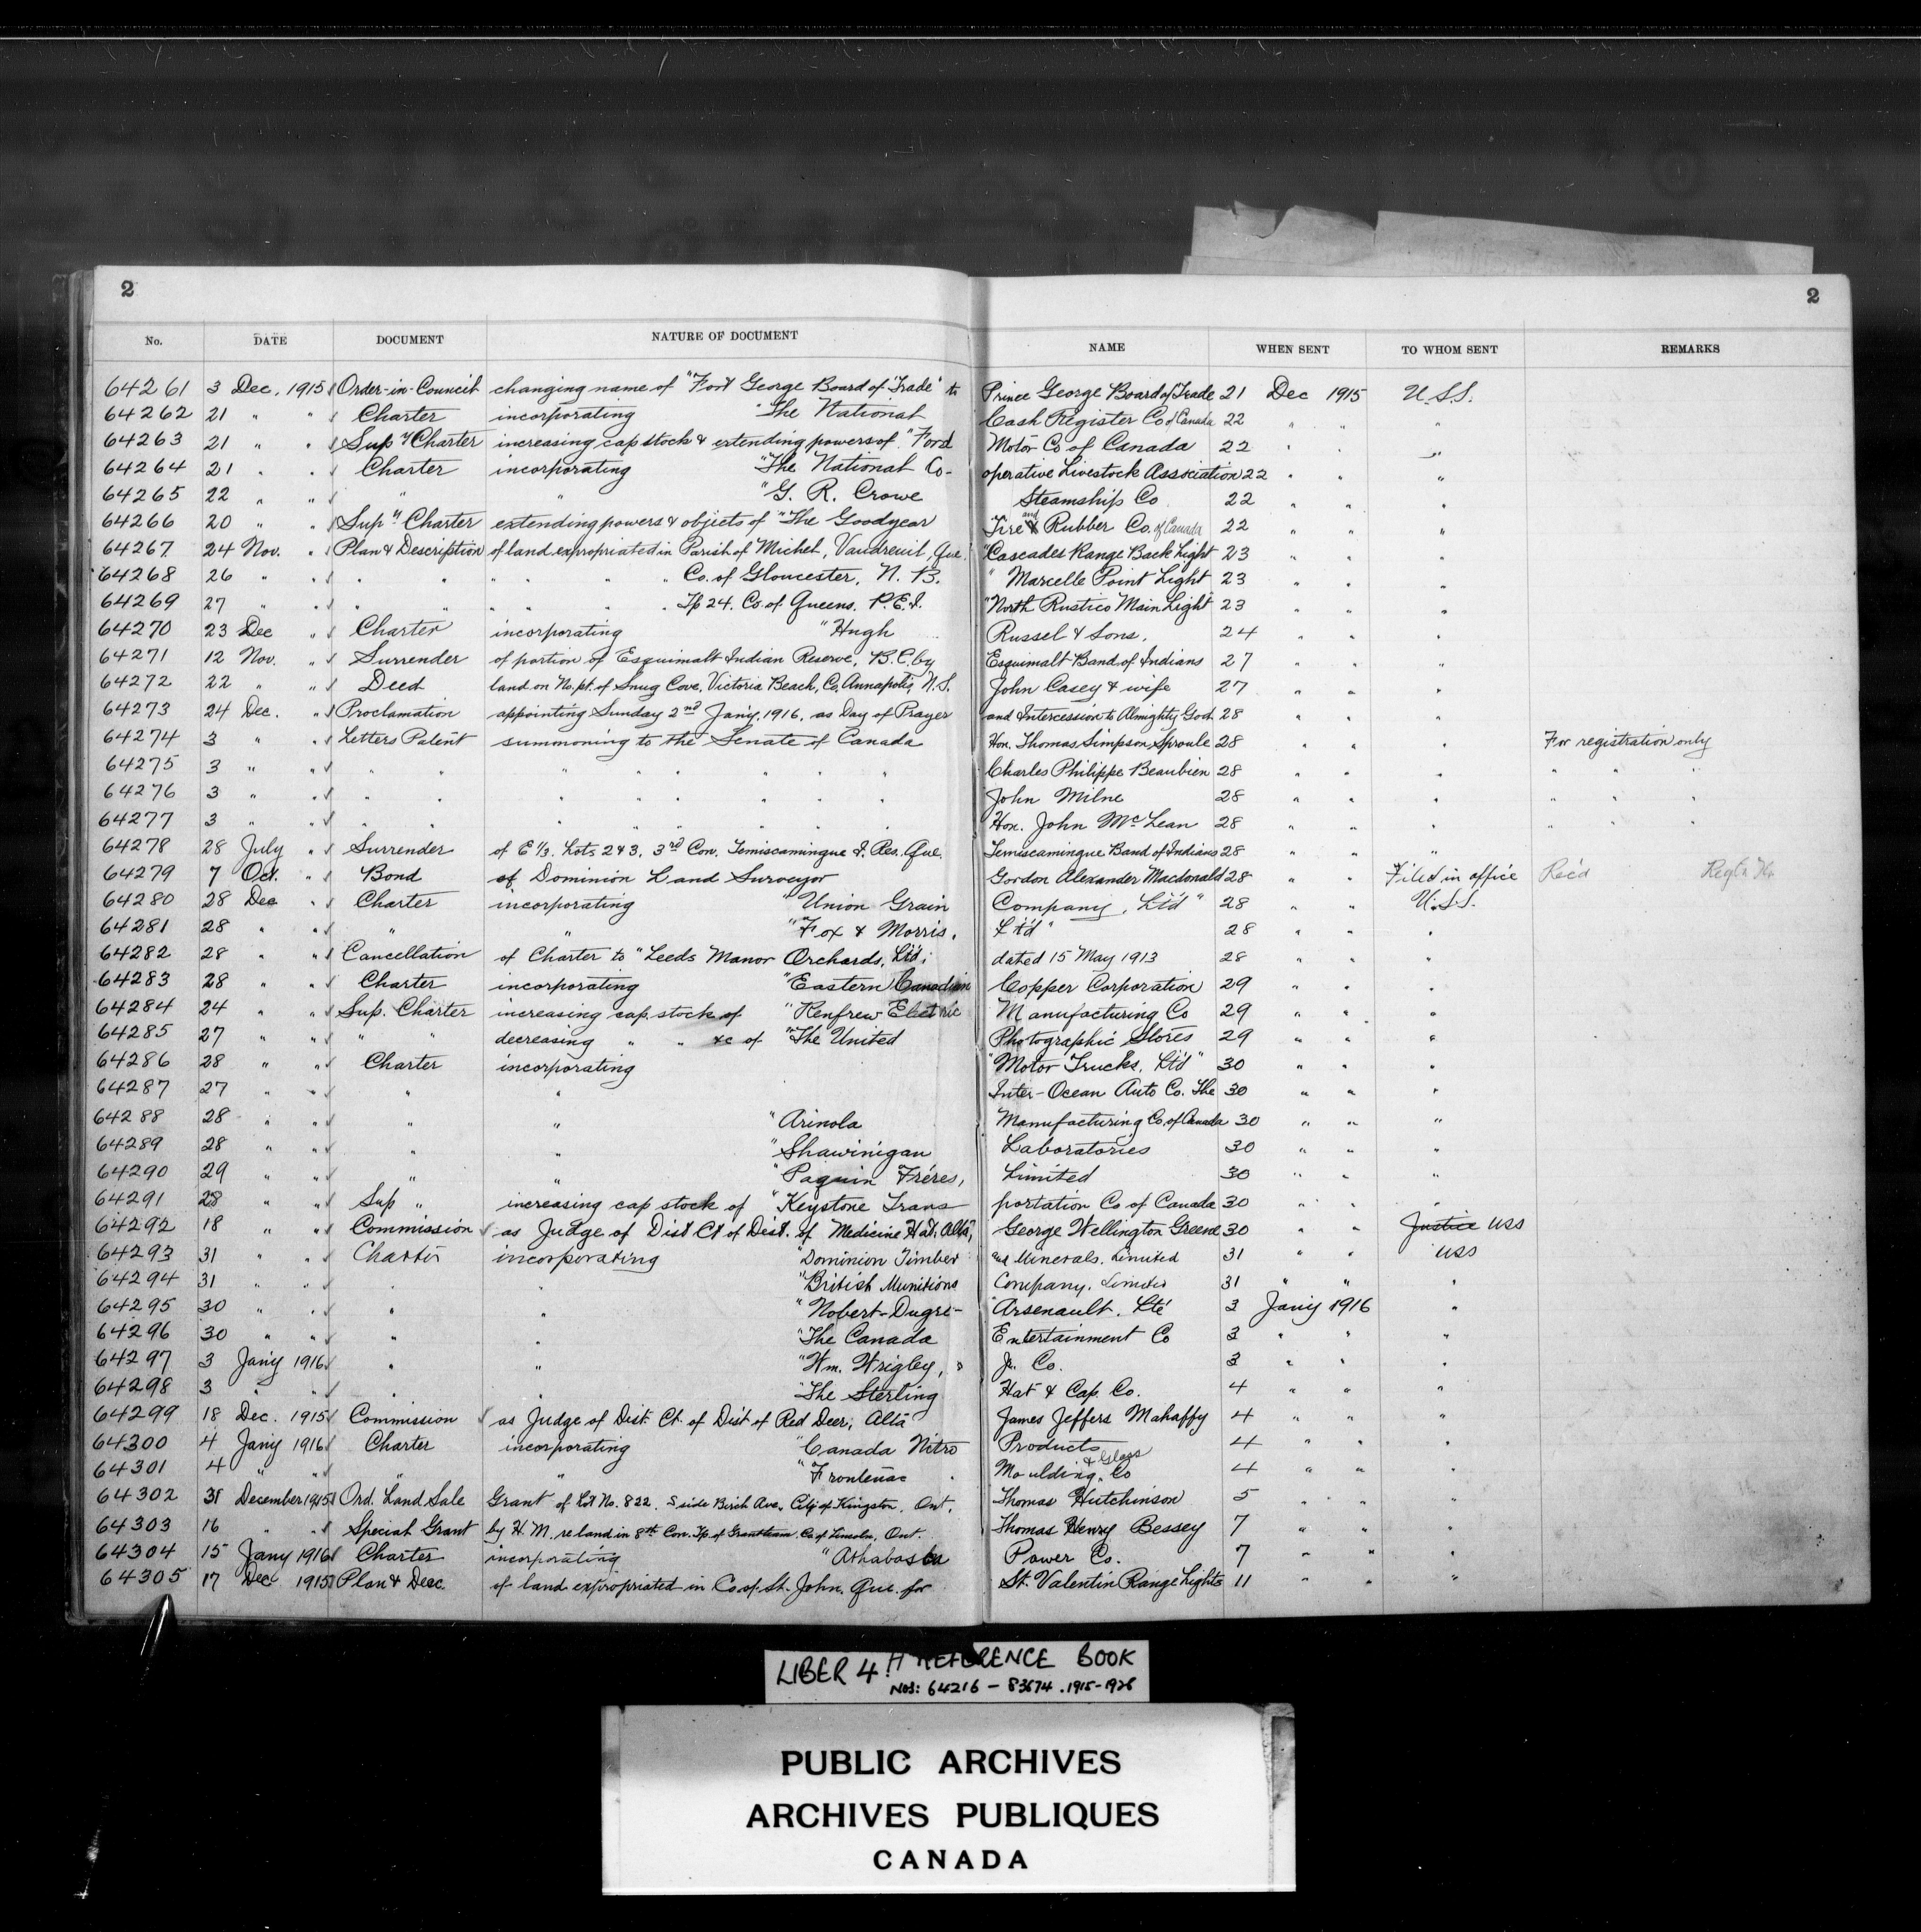 2
2
No. DATE DOCUMENT NATURE OF DOCUMENT NAME WHEN SENT TO WHOM SENT REMARKS
64261 3 Dec. 1915 Order-in-Council changing name of "Fort George Board of Trade" to Prince George Board of Trade 21 Dec 1915 U.S.S.
64262 21 " " Charter incorporating "The National Cash Register Co of Canada 22 " " "
64263 21 " " Supy Charter increasing cap stock & extending powers of "Ford Motor Co of Canada 22 " " "
64264 21 " " Charter incorporating "The National Co-operative Livestock Association 22 " " "
64265 22 " " " " "G. R. Crowe Steamship Co 22 " " "
64266 20 " " Supy Charter extending powers & objects of "The Goodyear Tire and Rubber Co. of Canada 22 " " "
64267 24 Nov. " Plan & Description of land expropriated in Parish of Michel, Vaudreuil, Que. "Cascades Range Back Light 23 " " "
64268 26 " " " " " " " Co. of Gloucester, N. B. " Marcelle Point Light 23 " " "
64269 27 " " " " " " " Tp 24. Co. of Queens. P.E.I. "North Rustico Main Light" 23 " " "
64270 23 Dec " Charter incorporating "Hugh Russel & Sons. 24 " " "
64271 12 Nov. " Surrender of portion of Esquimalt Indian Reserve, B.C. by Esquimalt Band of Indians 27 " " "
64272 22 " " Deed land on No. pt. of Snug Cove, Victoria Beach, Co. Annapolis, N.S. John Casey & wife 27 " " "
64273 24 Dec. " Proclamation appointing Sunday 2nd Jan'y. 1916, as Day of Prayer and Intercession to Almighty God. 28 " " "
64274 3 " " Letters Patent summoning to the Senate of Canada Hon. Thomas Simpson Sproule 28 " " " For registration only
64275 3 " " " " " " " " " Charles Philippe Beaubien 28 " " " " " "
64276 3 " " " " " " " " " John Milne 28 " " " " " "
64277 3 " " " " " " " " " Hon. John McLean 28 " " " " " "
64278 28 July " Surrender of E 1/3. Lots 2 & 3, 3rd Con. Temiscamingue I. Res. Que. Temiscamingue Band of Indians 28 " " "
64279 7 Oct. " Bond of Dominion Land Surveyor Gordon Alexander Macdonald 28 " " Filed in office Rec'd
64280 28 Dec " Charter incorporating "Union Grain Company, Lt'd" 28 " " U.S.S.
64281 28 " " " " "Fox & Morris, Lt'd" 28 " " "
64282 28 " " Cancellation of Charter to "Leeds Manor Orchards, Lt'd, dated 15 May 1913 28 " " "
64283 28 " " Charter incorporating "Eastern Canadian Copper Corporation 29 " " "
64284 24 " " Sup. Charter increasing cap. stock of "Renfrew Electric Manufacturing Co 29 " " "
64285 27 " " " " decreasing " " &c of "The United Photographic Stores 29 " " "
64286 28 " " Charter incorporating "Motor Trucks, Lt'd" 30 " " "
64287 27 " " " " Inter-Ocean Auto Co. The 30 " " "
64288 28 " " " " "Arinola Manufacturing Co. of Canada 30 " " "
64289 28 " " " " "Shawinigan Laboratories 30 " " "
64290 29 " " " " "Paquin Fréres, Limited 30 " " "
64291 28 " " Sup " increasing cap stock of "Keystone Transportation Co of Canada 30 " " "
64292 18 " " Commission as Judge of Dist Ct of Dist. of Medicine Hat, Alta, George Wellington Greene 30 " " Justice USS
64293 31 " " Charter incorporating "Dominion Timber and Minerals. Limited 31 " " USS
64294 31 " " " " "British Munitions Company, Limited 31 " " "
64295 30 " " " " "Nobert-Dugré-Arsenault. Lté 3 Jan'y 1916 "
64296 30 " " " " "The Canada Entertainment Co 3 " " "
64297 3 Jan'y 1916 " " "Wm. Wrigley, Jr. Co. 3 " " "
64298 3 " " " " "The Sterling Hat & Cap. Co. 4 " " "
64299 18 Dec. 1915 Commission as Judge of Dist. Ct. of Dist of Red Deer, Alta James Jeffers Mahaffy 4 " " "
64300 4 Jan'y 1916 Charter incorporating "Canada Nitro Products 4 " " "
64301 4 " " " " "Frontenac Moulding & Glass Co 4 " " "
64302 31 December 1915 Ord. Land Sale Grant of Lot No. 822. S side Birch Ave, City of Kingston, Ont. Thomas Hutchinson 5 " " "
64303 16 " " Special Grant by H. M. re land in 8th Con. Tp. of Grantham Co. of Lincoln, Ont. Thomas Henry Bessey 7 " " "
64304 15 Jany 1916 Charter incorporating "Athabasca Power Co. 7 " " "
64305 17 Dec 1915 Plan & Desc. of land expropriated in Co. of St. John, Que. for St. Valentin Range Lights 11 " " "
LIBER 4 H REFERENCE BOOK
NOS: 64216 - 83674 . 1915-1926
PUBLIC ARCHIVES
ARCHIVES PUBLIQUES
CANADA